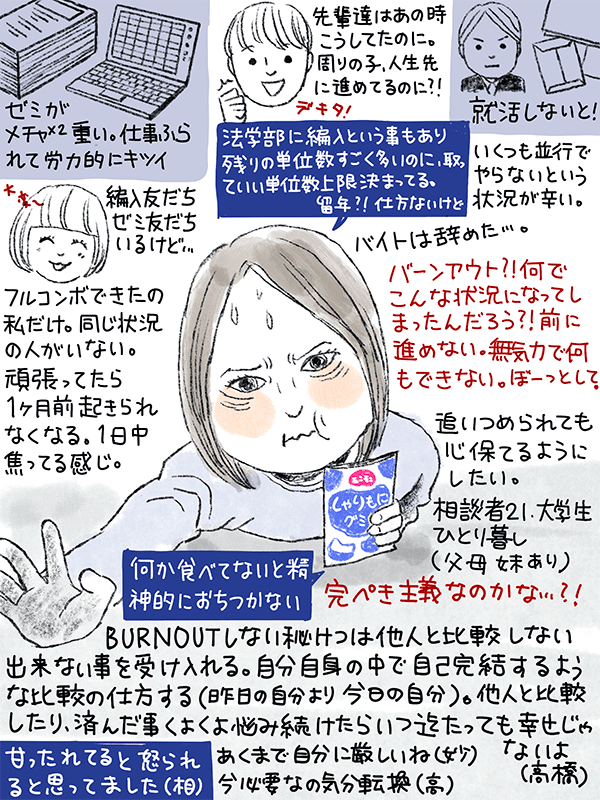 ゼミが
メチャ×2重い。仕事ふら
れて労力的にキツイ
先輩達はあの時
こうしてたのに。
周りの子、人生先
に進めてるのに?!
デキタ!
就活しないと!
法学部に編入という事もあり
残りの単位数すごく多いのに、取っ
ていい単位数上限決まってる。
留年?!仕方ないけど
いくつも並行で
やらないという
状況が辛い。
バイトは辞めた…。
編入友だち
ゼミ友だち
いるけど…
フルコンボできたの
私だけ。同じ状況
の人がいない。
頑張ってたら
1ヶ月前起きられ
なくなる。1日中
焦ってる感じ。
バーンアウト?!何で
こんな状況になってし
まったんだろう?!前に
進めない。無気力で何
もできない。ぼーっとして
追いつめられても
心保てるように
したい。
相談者21、大学生
ひとり暮し
(父母妹あり)
しゃりもに
グミ
何か食べてないと精
神的におちつかない
完ぺき主義なのかな…?!
BURNOUTしない秘けつは他人と比較しない
出来ない事を受け入れる。自分自身の中で自己完結するよう
な比較の仕方する(昨日の自分より今日の自分)。他人と比較
したり、済んだ事くよくよ悩み続けたらいつ迄たっても幸せじゃ
ないよ
(高橋)
甘ったれてると怒られ
ると思ってました(相)
あくまで自分に厳しいね
今必要なの気分転換(高)